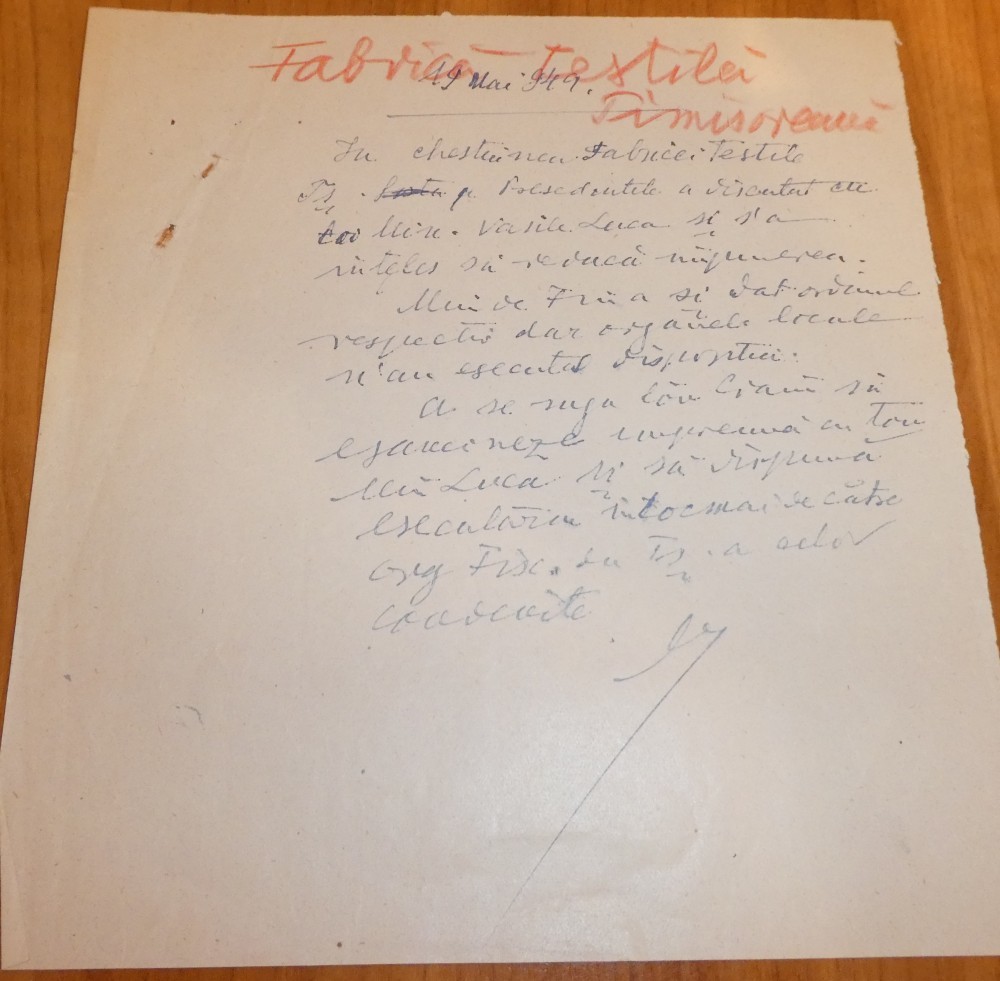 Fabrică Textilă
Timisoreană
19 Mai 949.
In chestiunea Fabricei Textile
Tș. Presedintele a discutat cu
Min. Vasile Luca și s'a
înțeles să reducă impunerea.
Min de Fin a și dat ordinul
respectiv dar organele locale
n'au executat dispoziția.
A se ruga să
examineze împreună cu Tov
Min Luca și să dispună
executarea întocmai de către
org Fisc. din Tș. a celor
convenite